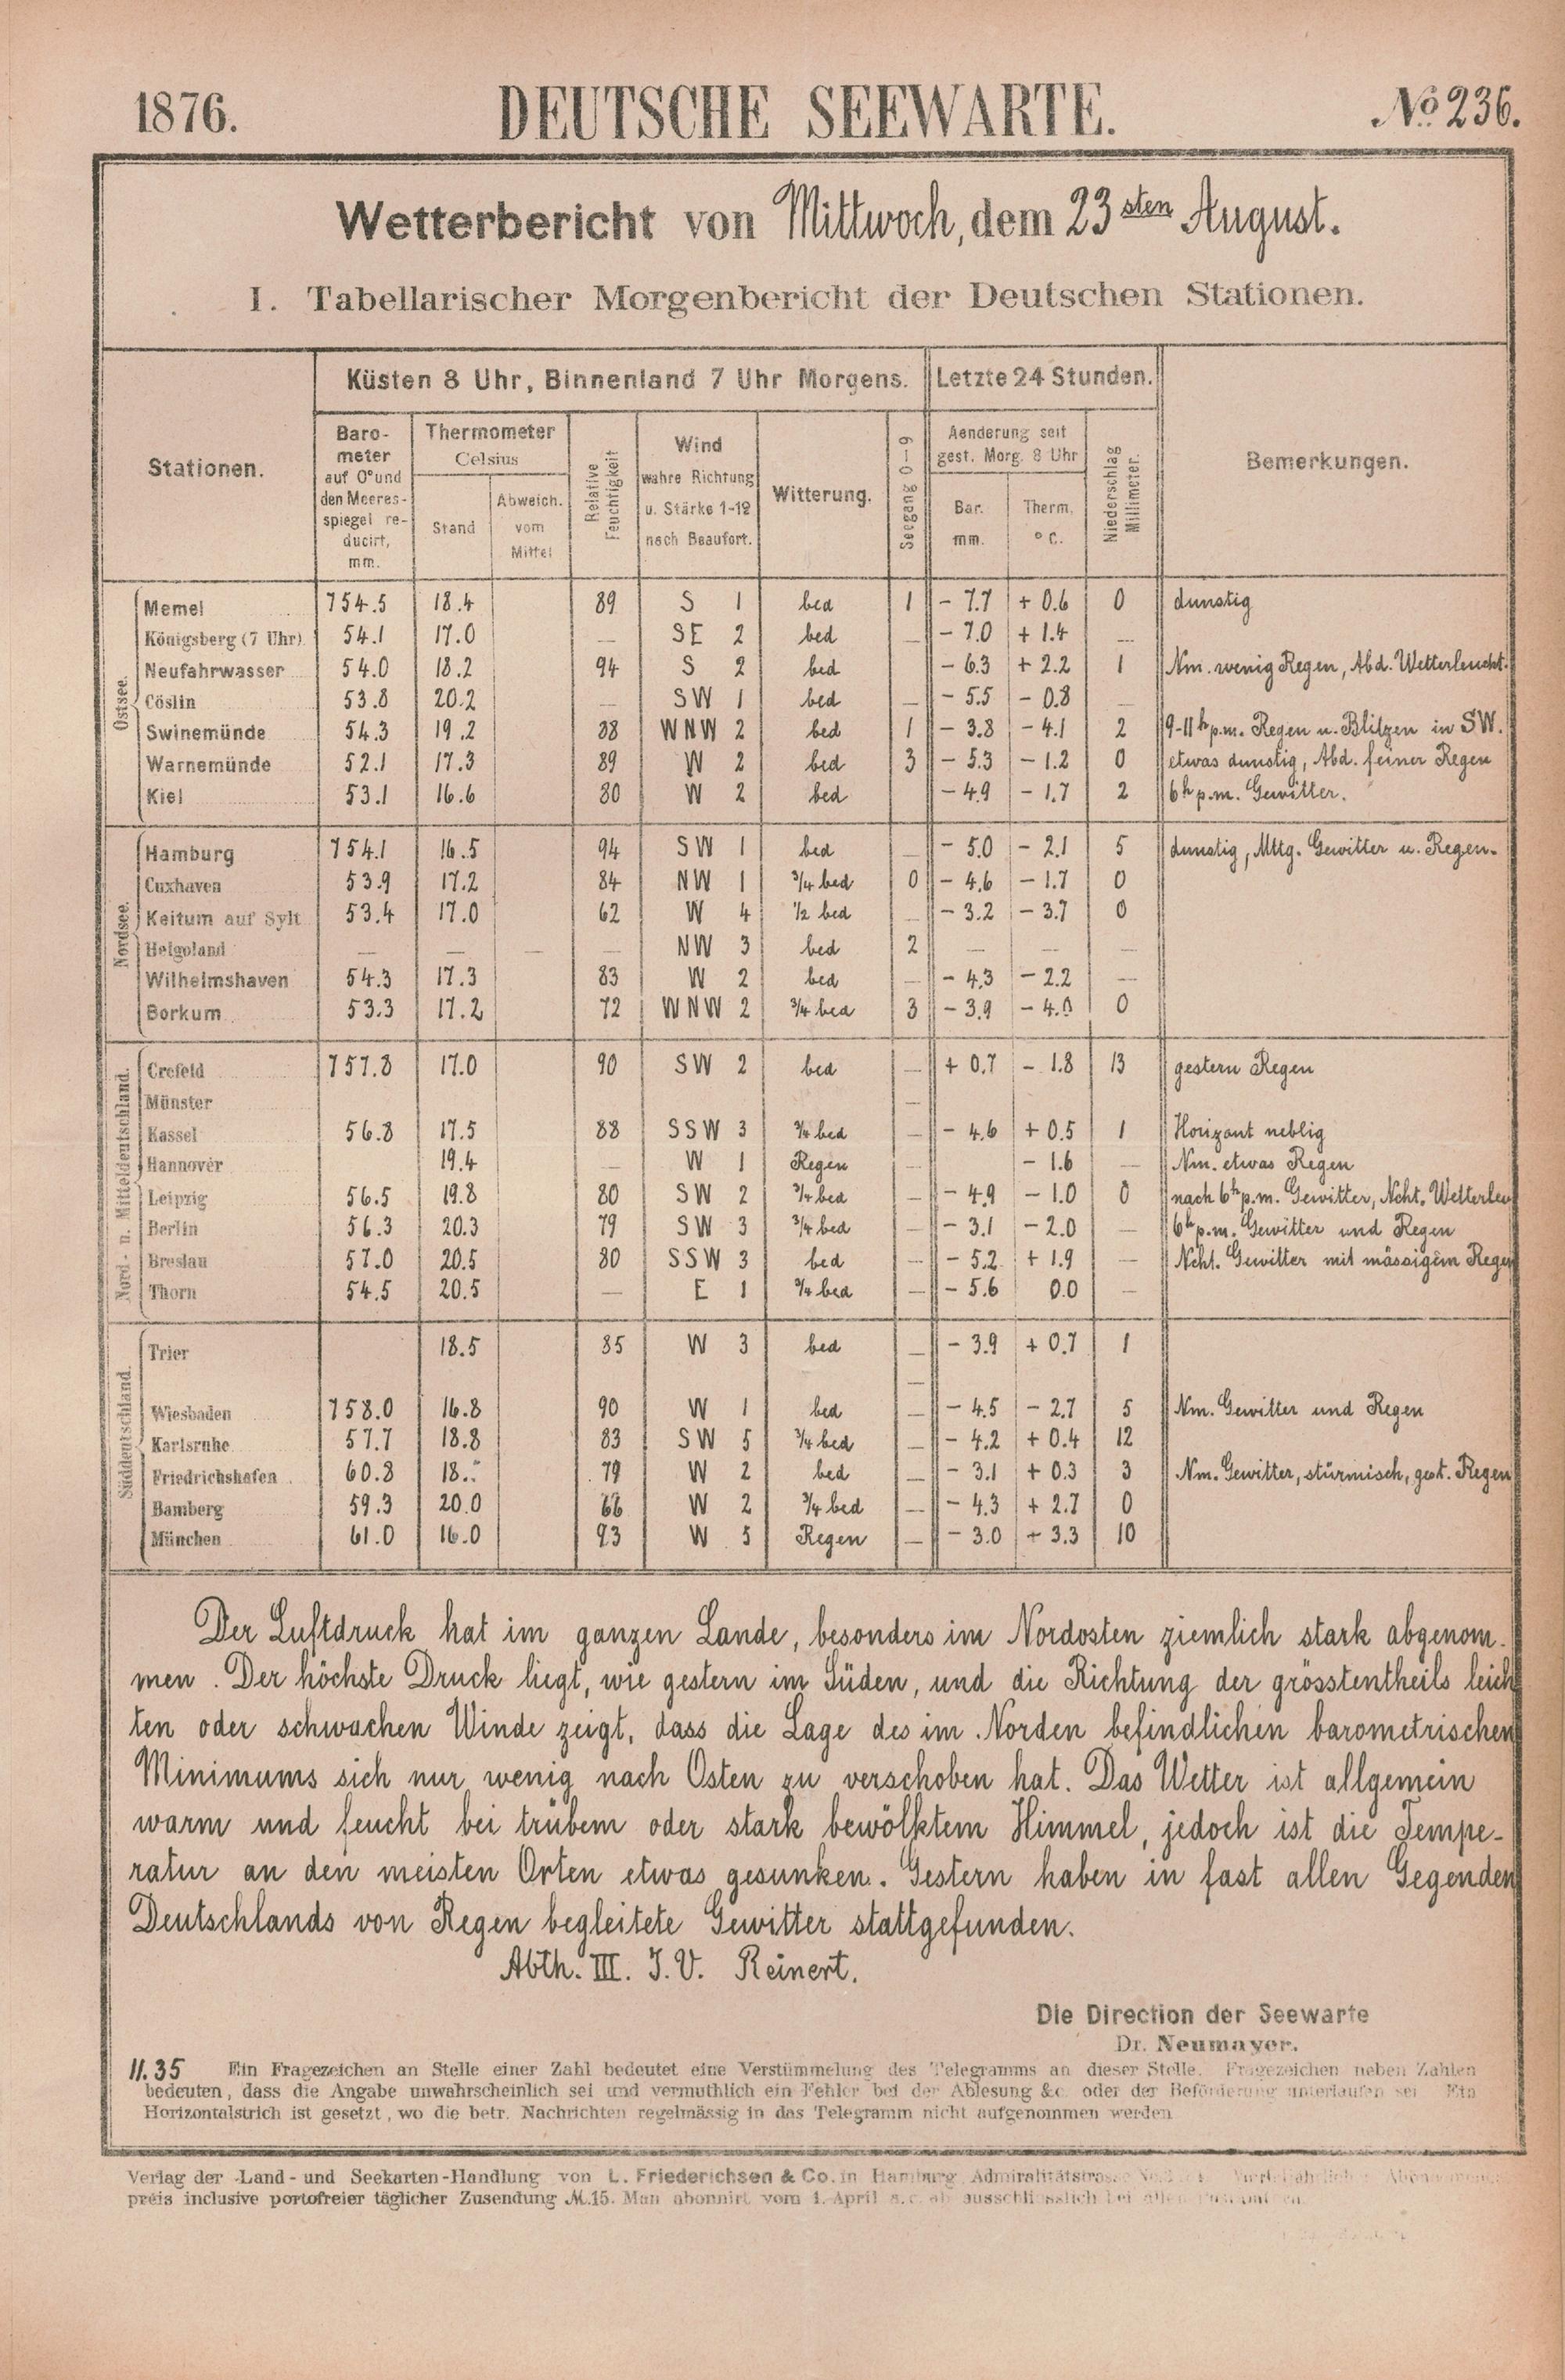 1876.
DEUTSCHE SEEWARTE.
No 236.
Wetterbericht von Mittwoch, dem 23sten August.
I. Tabellarischer Morgenbericht der Deutschen Stationen.
Stationen.
Küsten 8 Uhr, Binnenland 7 Uhr Morgens.
Letzte 24 Stunden.
Bemerkungen.
Baro-
meter
auf 0° und
den Meeres-
spiegel re-
ducirt,
mm.
Thermometer
Celsius
Stand
Abweich.
vom
Mittel
Relative
Feuchtigkeit
Wind
wahre Richtung
u. Stärke 1-12
nach Beaufort.
Witterung.
Seegang 0-9
Aenderung seit
gest. Morg. 8 Uhr
Bar.
mm.
Therm.
° C.
Niederschlag
Millimeter.
Ostsee.
Memel 754.5 18.4 89 S 1 bed 1 - 7.7 + 0.6 0 dunstig
Königsberg (7 Uhr) 54.1 17.0 — SE 2 bed — - 7.0 + 1.4 —
Neufahrwasser 54.0 18.2 94 S 2 bed - 6.3 + 2.2 1 Nm. wenig Regen, Abd. Wetterleucht.
Cöslin 53.8 20.2 — SW 1 bed — - 5.5 - 0.8 —
Swinemünde 54.3 19.2 88 WNW 2 bed 1 - 3.8 - 4.1 2 9-11h p.m. Regen u. Blitzen in SW.
Warnemünde 52.1 17.3 89 W 2 bed 3 - 5.3 - 1.2 0 etwas dunstig, Abd. feiner Regen
Kiel 53.1 16.6 80 W 2 bed - 4.9 - 1.7 2 6h p.m. Gewitter.
Nordsee.
Hamburg 754.1 16.5 94 SW 1 bed — - 5.0 - 2.1 5 dunstig, Mttg. Gewitter u. Regen.
Cuxhaven 53.9 17.2 84 NW 1 3/4 bed 0 - 4.6 - 1.7 0
Keitum auf Sylt 53.4 17.0 62 W 4 1/2 bed — - 3.2 - 3.7 0
Helgoland — — — — NW 3 bed 2 — — —
Wilhelmshaven 54.3 17.3 83 W 2 bed — - 4.3 - 2.2 —
Borkum 53.3 17.2 72 WNW 2 3/4 bed 3 - 3.9 - 4.0 0
Nord- u. Mitteldeutschland.
Crefeld 757.8 17.0 90 SW 2 bed — + 0.7 - 1.8 13 gestern Regen
Münster —
Kassel 56.8 17.5 88 SSW 3 3/4 bed — - 4.6 + 0.5 1 Horizont neblig
Hannover 19.4 — W 1 Regen — - 1.6 — Nm. etwas Regen
Leipzig 56.5 19.8 80 SW 2 3/4 bed — - 4.9 - 1.0 0 nach 6h p.m. Gewitter, Ncht. Wetterleu
Berlin 56.3 20.3 79 SW 3 3/4 bed — - 3.1 - 2.0 — 6h p.m. Gewitter und Regen
Breslau 57.0 20.5 80 SSW 3 bed — - 5.2 + 1.9 — Ncht. Gewitter mit mässigem Regen
Thorn 54.5 20.5 — E 1 3/4 bed — - 5.6 0.0 —
Süddeutschland.
Trier 18.5 85 W 3 bed — - 3.9 + 0.7 1
—
Wiesbaden 758.0 16.8 90 W 1 bed — - 4.5 - 2.7 5 Nm. Gewitter und Regen
Karlsruhe 57.7 18.8 83 SW 5 3/4 bed — - 4.2 + 0.4 12
Friedrichshafen 60.8 18. 79 W 2 bed — - 3.1 + 0.3 3 Nm. Gewitter, stürmisch, gest. Regen
Bamberg 59.3 20.0 66 W 2 3/4 bed — - 4.3 + 2.7 0
München 61.0 16.0 93 W 5 Regen — - 3.0 + 3.3 10
Der Luftdruck hat im ganzen Lande, besonders im Nordosten ziemlich stark abgenom-
men. Der höchste Druck liegt, wie gestern im Süden, und die Richtung der grösstentheils leich
ten oder schwachen Winde zeigt, dass die Lage des im Norden befindlichen barometrischen
Minimums sich nur wenig nach Osten zu verschoben hat. Das Wetter ist allgemein
warm und feucht bei trübem oder stark bewölktem Himmel, jedoch ist die Tempe-
ratur an den meisten Orten etwas gesunken. Gestern haben in fast allen Gegenden
Deutschlands von Regen begleitete Gewitter stattgefunden.
Abth. III. I.V. Reinert.
Die Direction der Seewarte
Dr. Neumayer.
11.35 Ein Fragezeichen an Stelle einer Zahl bedeutet eine Verstümmelung des Telegramms an dieser Stelle. Fragezeichen neben Zahlen
bedeuten, dass die Angabe unwahrscheinlich sei und vermuthlich ein Fehler bei der Ablesung &c. oder der Beförderung unterlaufen sei. Ein
Horizontalstrich ist gesetzt, wo die betr. Nachrichten regelmässig in das Telegramm nicht aufgenommen werden
Verlag der Land- und Seekarten-Handlung von L. Friederichsen & Co. in Hamburg, Admiralitätstrasse
preis inclusive portofreier täglicher Zusendung M.15. Man abonnirt vom 1. April a.c. ab ausschliesslich bei allen